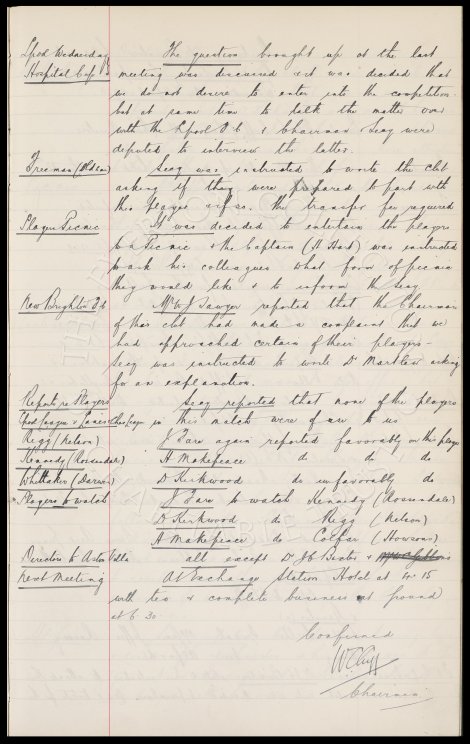 Lpool Wednesday The question brought up at the last
Hospital Cup meeting was discussed & it was decided that
we do not desire to enter into the competition
but at same time to talk the matter over
with the Lpool F.C. & Chairman & Secy were
deputed to interview the latter.
Freeman (Oldham) Secy was instructed to write the club
asking if they were prepared to part with
this player & if so the transfer fee required
Players Picnic It was decided to entertain the players
to a Picnic & the Captain (H Hart) was instructed
to ask his colleagues what form of picnic
they would like & to inform the Secy
New Brighton F.C. Mr W J Sawyer reported that the Chairman
of that club had made a complaint that we
had approached certain of their players -
Secy was instructed to write Dr Martlew asking
for an explanation.
Reports re Players Secy reported that none of the players
in this match were of use to us
Rigg (Nelson) J Sare again reported favorably on this player
Kennedy (Rossendale) H Makepeace do do do
Whittaker (Darwen) D Kirkwood do unfavorably do
Players to watch J Sare to watch Kennedy (Rossendale)
D Kirkwood do Rigg (Nelson)
H Makepeace do
Directors to Aston Villa all except Dr J C Baxter &
Next Meeting At Exchange Station Hotel at 4. 15
with tea & complete business at ground
at 6 30
Confirmed
W C Cuff
Chairman